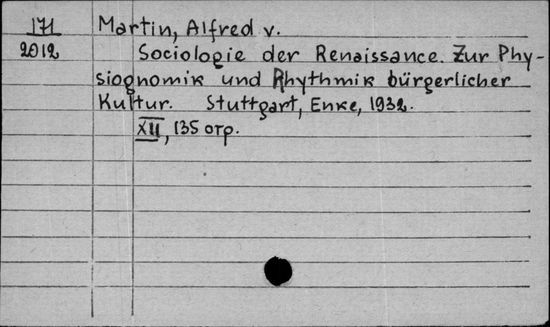 171 Martin, Alfred v.
2012 Sociologie der Renaissance. Zur Phy-
siognomik und Rhythmik bürgerlicher
Kultur. Stuttgart, Enke, 1932.
XII, 135 стр.